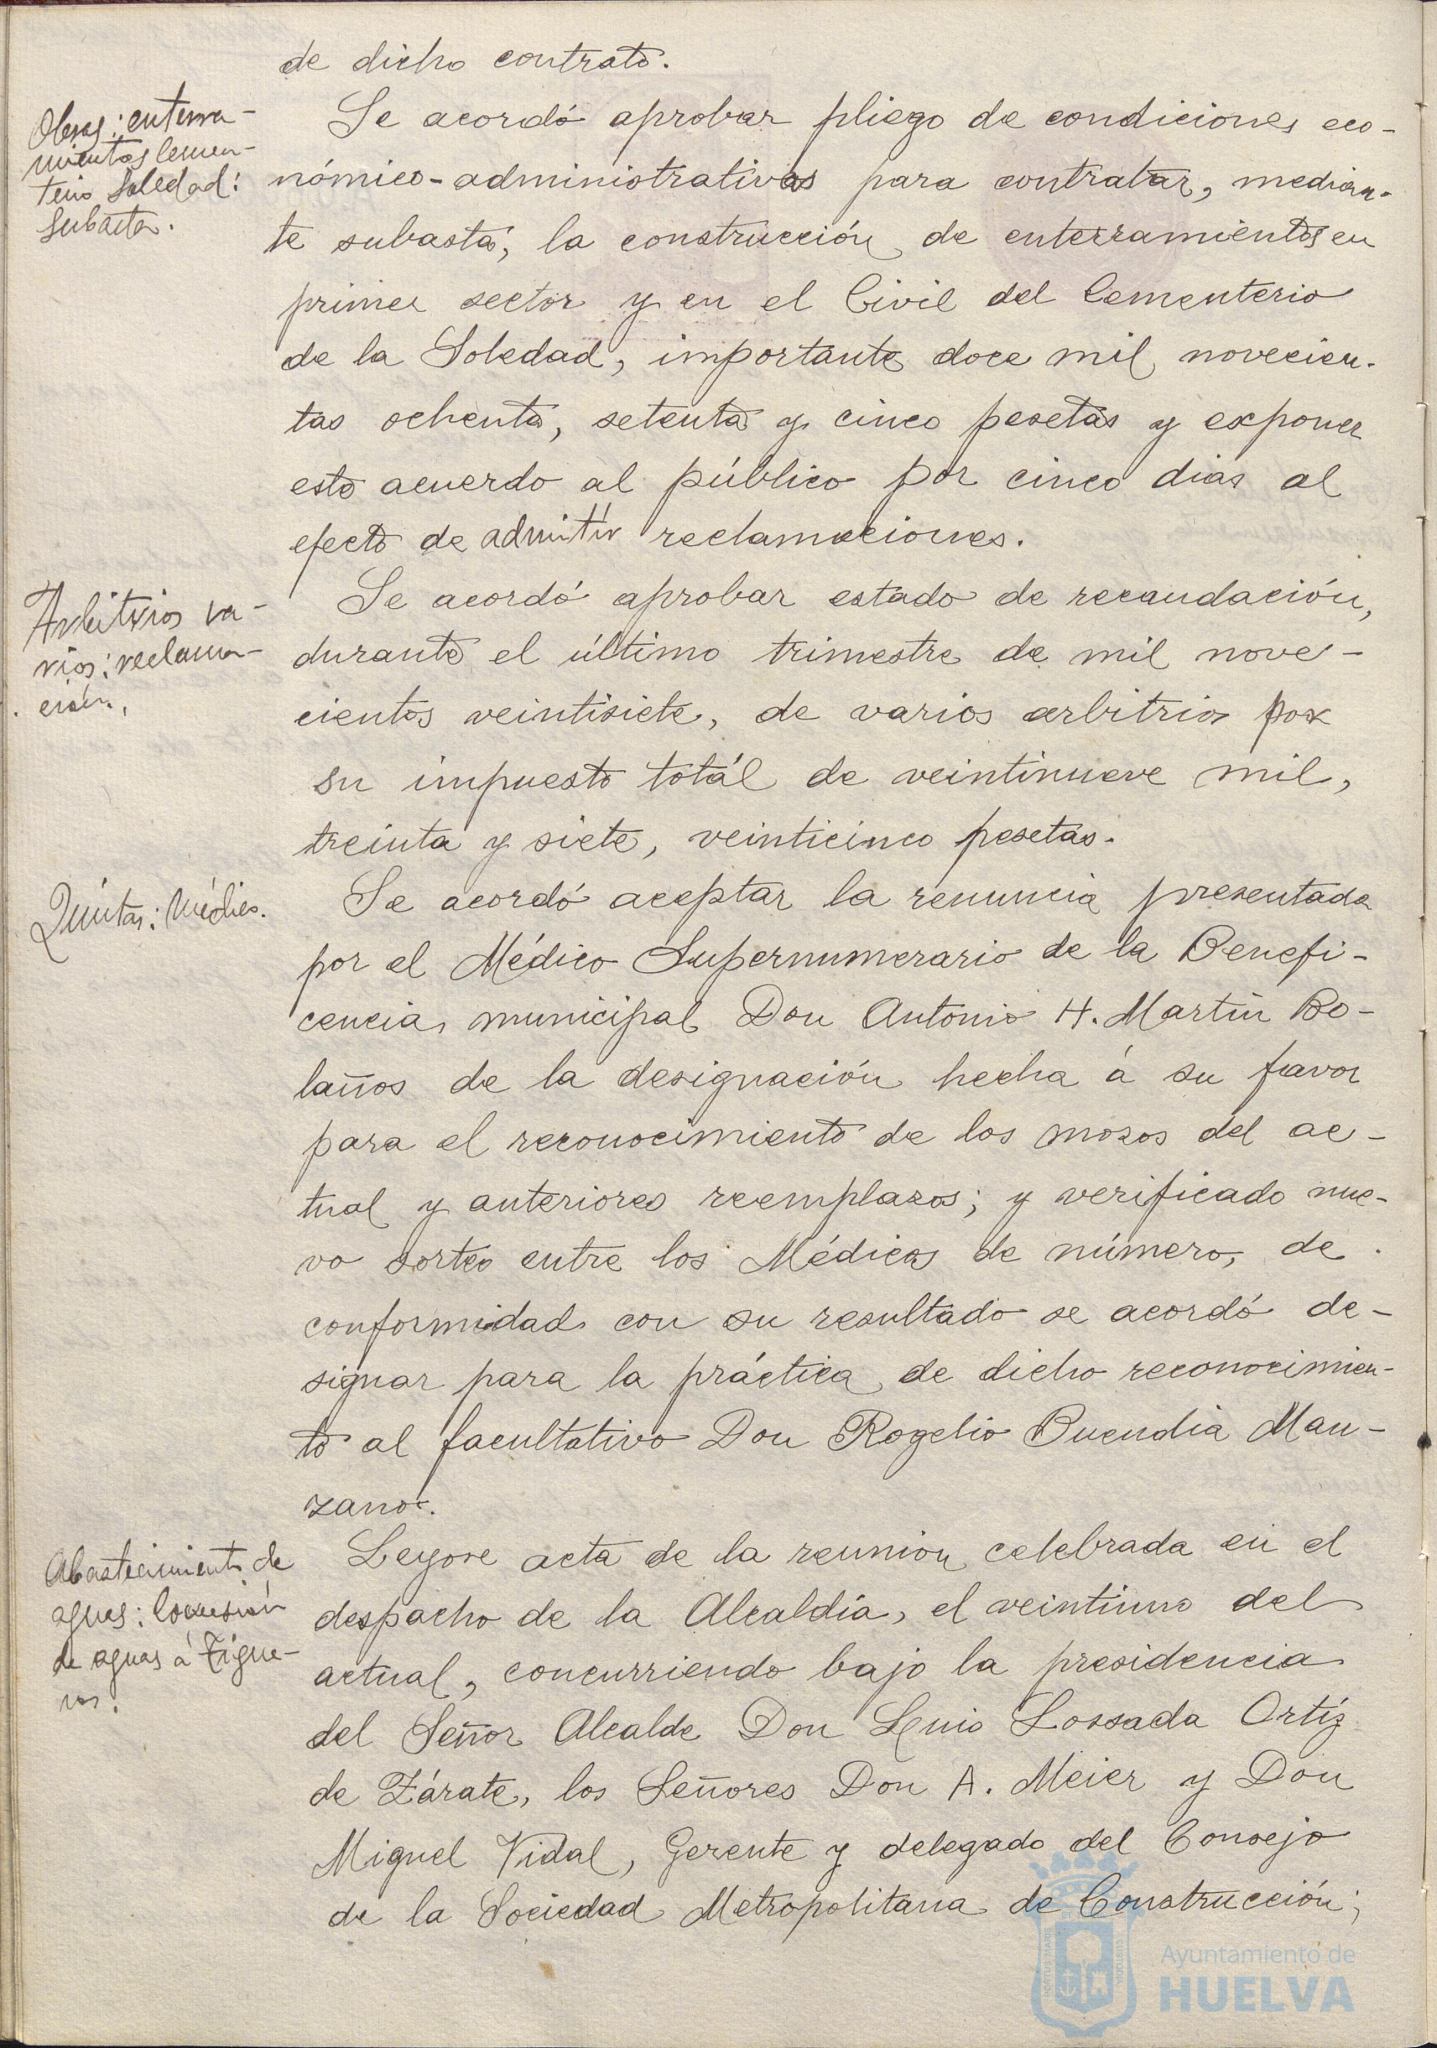 de dicho contrato.
Obras: enterra-
mientos Cemen-
terio Soledad:
Subasta.
Se acordó aprobar pliego de condiciones eco-
nómico-administrativas para contratar, median-
te subasta, la construcción de enterramientos en
primer sector y en el Civil del Cementerio
de la Soledad, importante doce mil novecien-
tas ochenta, setenta y cinco pesetas y exponer
este acuerdo al público por cinco dias al
efecto de admitir reclamaciones.
Arbitrios va-
rios: reclama-
ción.
Se acordó aprobar estado de recaudación,
durante el último trimestre de mil nove-
cientos veintisiete, de varios arbitrios por
su impuesto totál de veintinueve mil,
treinta y siete, veinticinco pesetas.
Quintas: Médico.
Se acordó aceptar la renuncia presentada
por el Médico Supernumerario de la Benefi-
cencia municipal Don Antonio H. Martin Bo-
laños de la designación hecha á su favor
para el reconocimiento de los mozos del ac-
tual y anteriores reemplazos; y verificado nue-
vo sorteo entre los Médicos de número, de
conformidad con su resultado se acordó de-
signar para la práctica de dicho reconocimien-
to al facultativo Don Rogelio Buendia Man-
zano.
Abastecimiento de
aguas: Concesión
de aguas á Zigue-
ros.
Leyose acta de la reunion celebrada en el
despacho de la Alcaldía, el veintiuno del
actual, concurriendo bajo la presidencia
del Señor Alcalde Don Luis Lossada Ortíz
de Zárate, los Señores Don A. Meier y Don
Miguel Vidal, Gerente y delegado del Consejo
de la Sociedad Metropolitana de Construcción;
Ayuntamiento de
HUELVA